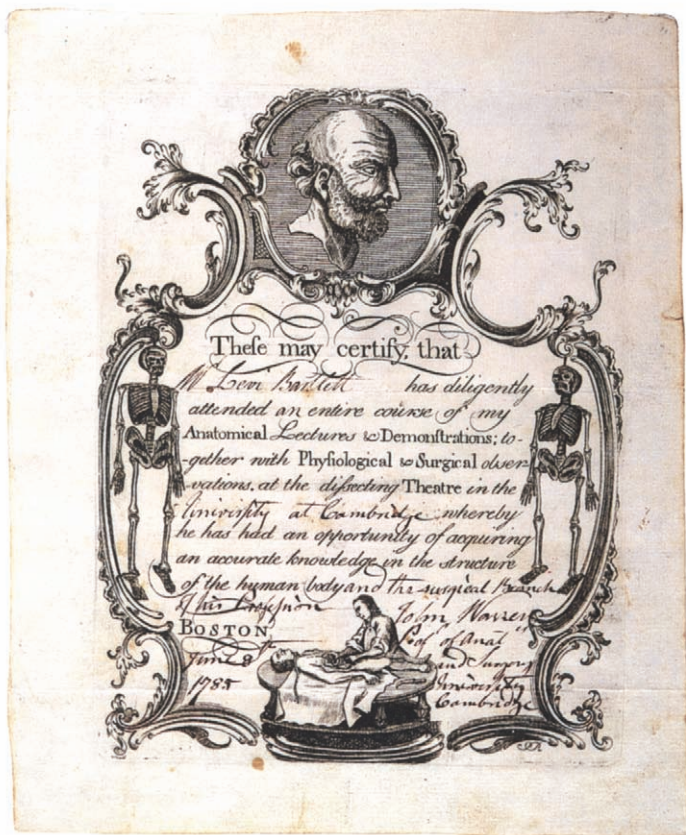 Theſe may certify, that
Mr. Levi Bartlett has diligently
attended an entire course of my
Anatomical Lectures & Demonſtrations; to-
-gether with Phyſiological & Surgical obser-
vations, at the diſsecting Theatre in the
University at Cambridge whereby
he has had an opportunity of acquiring
an accurate knowledge in the structure
of the human body and the surgical Branch
of his Profession John Warren
BOSTON, Prof.r of Anat.
June 8th and Surgery
1785 University
Cambridge